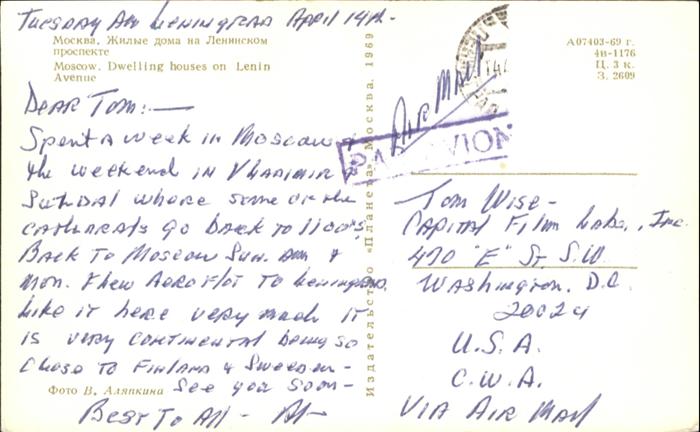 Tuesday AM Leningrad April 14th-
Москва. Жилые дома на Ленинском
проспекте
Moscow. Dwelling houses on Lenin
Avenue
Dear Tom:—
Spent a week in Moscow &
the weekend in Vladimir &
Suzdal where some of the
cathedrals go back to 1100's
Back to Moscow Sun. am &
Mon. Flew Aeroflot to Leningrad.
Like it here very much It
is very continental being so
close to Finland & Sweden-
See you soon-
Best to All -
Фото В. Аляпкина
Издательство «Планета» Москва. 1969
А07403-69 г.
4н-1176
Ц. 3 к.
З. 2609
Air Mail
PAR AVION
Tom Wise-
Capital Film Labs., Inc.
470 "E" St S.W.
Washington, D.C.
20024
U.S.A.
С.Ш.А.
Via Air Mail